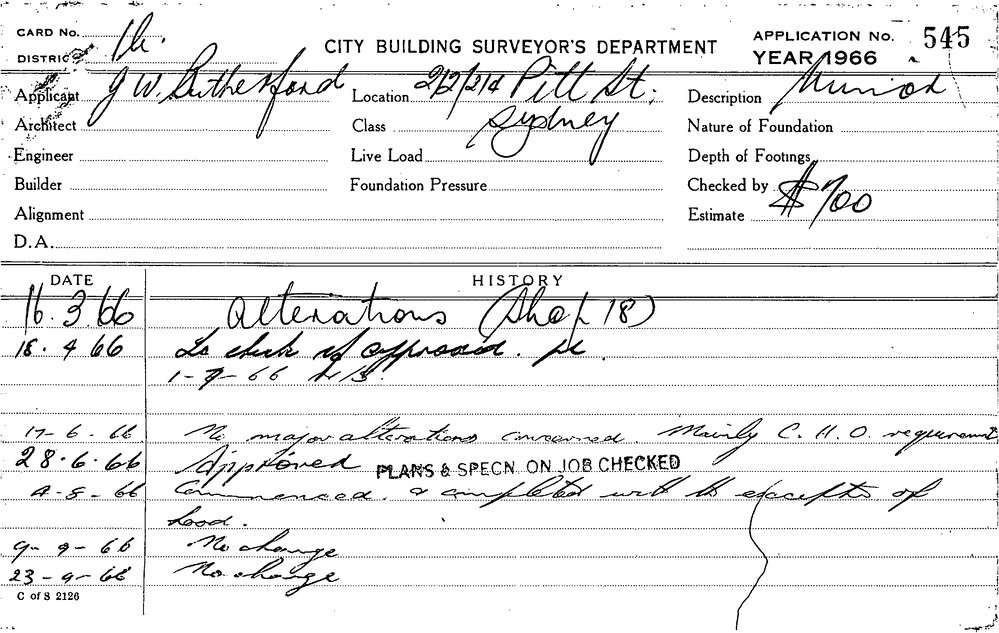 CARD No. 1h.
CITY BUILDING SURVEYOR'S DEPARTMENT
APPLICATION No. 545
DISTRICT
YEAR 1966
Applicant J W. Rutherford
Location 212/214 Pitt St;
Description Minion
Architect
Class Sydney
Nature of Foundation
Engineer
Live Load
Depth of Footings
Builder
Foundation Pressure
Checked by
Alignment
Estimate $700
D.A.
DATE HISTORY
16.3.66 Alterations (Shop 18)
18.4.66 To check if approved.
1-7-66
17-6-66 No major alterations concerned. Mainly C.H.O. requirements
28.6.66 Approved PLANS & SPECN. ON JOB CHECKED
4-8-66 Commenced. & completed with the exception of
hood.
9-9-66 No change
23-9-66 No change
C of S 2126